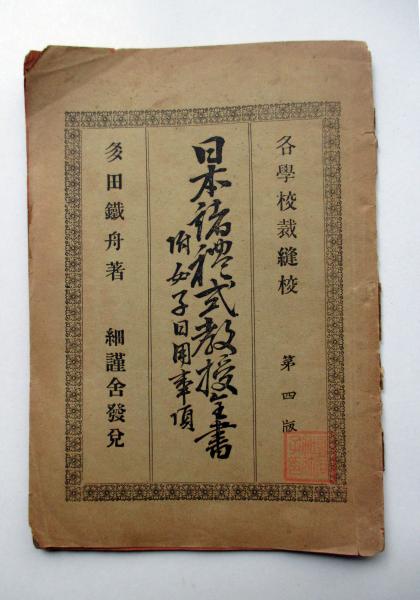 各學校裁縫校 第四版
日本諸禮式敎授全書
附女子日用事項
多田鐵舟著 細謹舍發兌